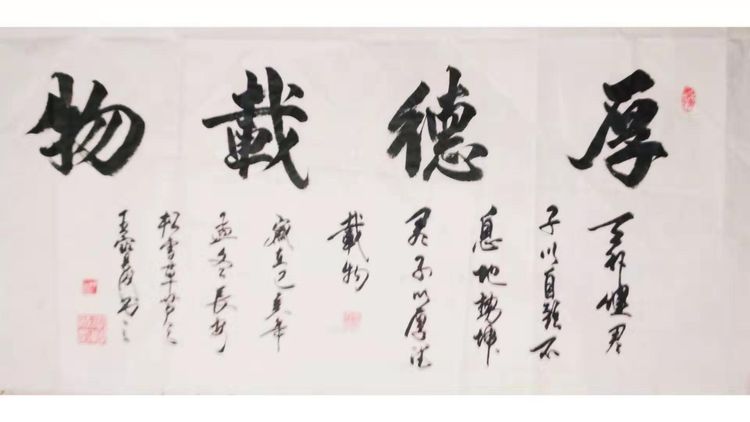 厚德載物
天行健君
子以自强不
息地勢坤
君子以厚德
載物
歲在己亥年
孟冬長安
松雪草堂